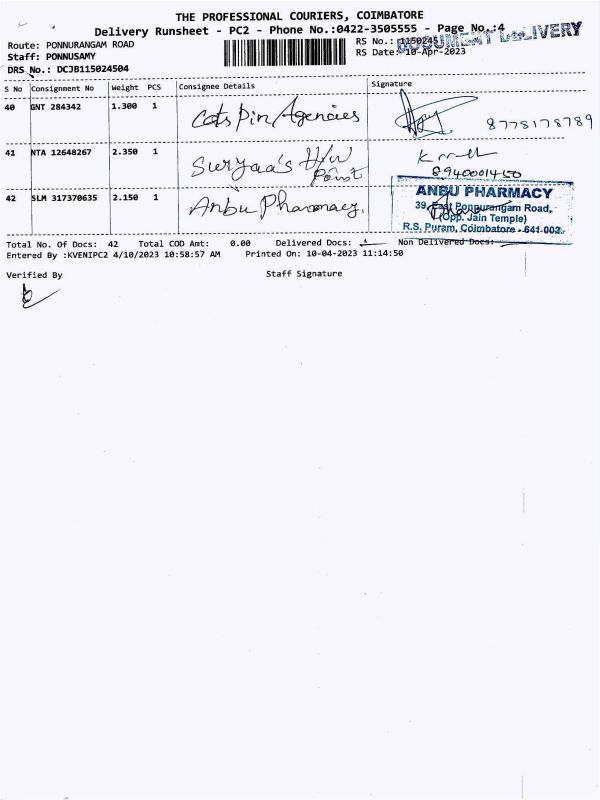 THE PROFESSIONAL COURIERS, COIMBATORE
Delivery Runsheet - PC2 - Phone No.:0422-3505555 - Page No.:4
DOCUMENT DELIVERY
Route: PONNURANGAM ROAD
RS No.: 1150245
Staff: PONNUSAMY
RS Date: 10-Apr-2023
DRS No.: DCJB115024504
S No Consignment No Weight PCS Consignee Details Signature
40 GNT 284342 1.300 1 Cots Pin Agencies 8778178789
41 NTA 12648267 2.350 1 Suryaa's H/W Point
8940001450
42 SLM 317370635 2.150 1 Anbu Pharmacy.
ANBU PHARMACY
39, East Ponnurangam Road,
(Opp. Jain Temple)
R.S. Puram, Coimbatore - 641 002.
Total No. Of Docs: 42 Total COD Amt: 0.00 Delivered Docs: Non Delivered Docs:
Entered By :KVENIPC2 4/10/2023 10:58:57 AM Printed On: 10-04-2023 11:14:50
Verified By Staff Signature